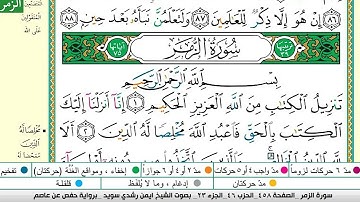 إِنْ هُوَ إِلَّا ذِكْرٌ لِّلْعَالَمِينَ ٨٧ وَلَتَعْلَمُنَّ نَبَأَهُ بَعْدَ حِينٍ ٨٨
سُورَةُ الزُّمَرِ
بِسْمِ اللَّهِ الرَّحْمَٰنِ الرَّحِيمِ
تَنزِيلُ الْكِتَابِ مِنَ اللَّهِ الْعَزِيزِ الْحَكِيمِ ١ إِنَّا أَنزَلْنَا إِلَيْكَ
الْكِتَابَ بِالْحَقِّ فَاعْبُدِ اللَّهَ مُخْلِصًا لَّهُ الدِّينَ ٢ أَلَا
مدّ ٦ حركات لزوماً مدّ واجب ٤ أو ٥ حركات مدّ ٢ أو ٤ أو ٦ جوازاً إخفاء، ومواقع الغُنَّة (حركتان) تفخيم
مدّ حركتان إدغام، وما لا يُلفَظ قلقلة
سورة الزمر - الصفحة ٤٥٨ الحزب ٤٦ - الجزء ٢٣. بصوت الشيخ ايمن رشدي سويد . برواية حفص عن عاصم
الزمر
مُخْلِصًا لَهُ